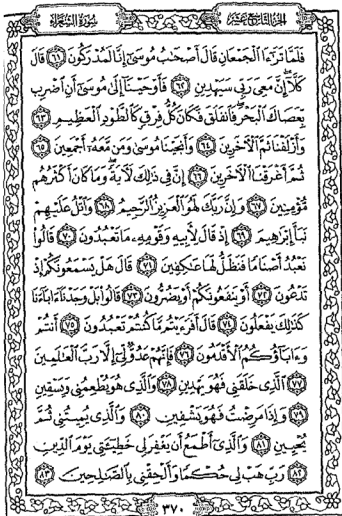 الجزء التاسع عشر
سورة الشعراء
فَلَمَّا تَرَٰٓءَا ٱلْجَمْعَانِ قَالَ أَصْحَٰبُ مُوسَىٰٓ إِنَّا لَمُدْرَكُونَ ٦١ قَالَ
كَلَّآ إِنَّ مَعِىَ رَبِّى سَيَهْدِينِ ٦٢ فَأَوْحَيْنَآ إِلَىٰ مُوسَىٰٓ أَنِ ٱضْرِب
بِّعَصَاكَ ٱلْبَحْرَ فَٱنفَلَقَ فَكَانَ كُلُّ فِرْقٍ كَٱلطَّوْدِ ٱلْعَظِيمِ ٦٣
وَأَزْلَفْنَا ثَمَّ ٱلْءَاخَرِينَ ٦٤ وَأَنجَيْنَا مُوسَىٰ وَمَن مَّعَهُۥٓ أَجْمَعِينَ ٦٥
ثُمَّ أَغْرَقْنَا ٱلْءَاخَرِينَ ٦٦ إِنَّ فِى ذَٰلِكَ لَءَايَةً وَمَا كَانَ أَكْثَرُهُم
مُّؤْمِنِينَ ٦٧ وَإِنَّ رَبَّكَ لَهُوَ ٱلْعَزِيزُ ٱلرَّحِيمُ ٦٨ وَٱتْلُ عَلَيْهِمْ
نَبَأَ إِبْرَٰهِيمَ ٦٩ إِذْ قَالَ لِأَبِيهِ وَقَوْمِهِۦ مَا تَعْبُدُونَ ٧٠ قَالُوا۟
نَعْبُدُ أَصْنَامًا فَنَظَلُّ لَهَا عَٰكِفِينَ ٧١ قَالَ هَلْ يَسْمَعُونَكُمْ إِذْ
تَدْعُونَ ٧٢ أَوْ يَنفَعُونَكُمْ أَوْ يَضُرُّونَ ٧٣ قَالُوا۟ بَلْ وَجَدْنَآ ءَابَآءَنَا
كَذَٰلِكَ يَفْعَلُونَ ٧٤ قَالَ أَفَرَءَيْتُم مَّا كُنتُمْ تَعْبُدُونَ ٧٥ أَنتُمْ
وَءَابَآؤُكُمُ ٱلْأَقْدَمُونَ ٧٦ فَإِنَّهُمْ عَدُوٌّ لِّىٓ إِلَّا رَبَّ ٱلْعَٰلَمِينَ
٧٧ ٱلَّذِى خَلَقَنِى فَهُوَ يَهْدِينِ ٧٨ وَٱلَّذِى هُوَ يُطْعِمُنِى وَيَسْقِينِ
٧٩ وَإِذَا مَرِضْتُ فَهُوَ يَشْفِينِ ٨٠ وَٱلَّذِى يُمِيتُنِى ثُمَّ
يُحْيِينِ ٨١ وَٱلَّذِىٓ أَطْمَعُ أَن يَغْفِرَ لِى خَطِيٓـَٔتِى يَوْمَ ٱلدِّينِ
٨٢ رَبِّ هَبْ لِى حُكْمًا وَأَلْحِقْنِى بِٱلصَّٰلِحِينَ ٨٣
٣٧٠